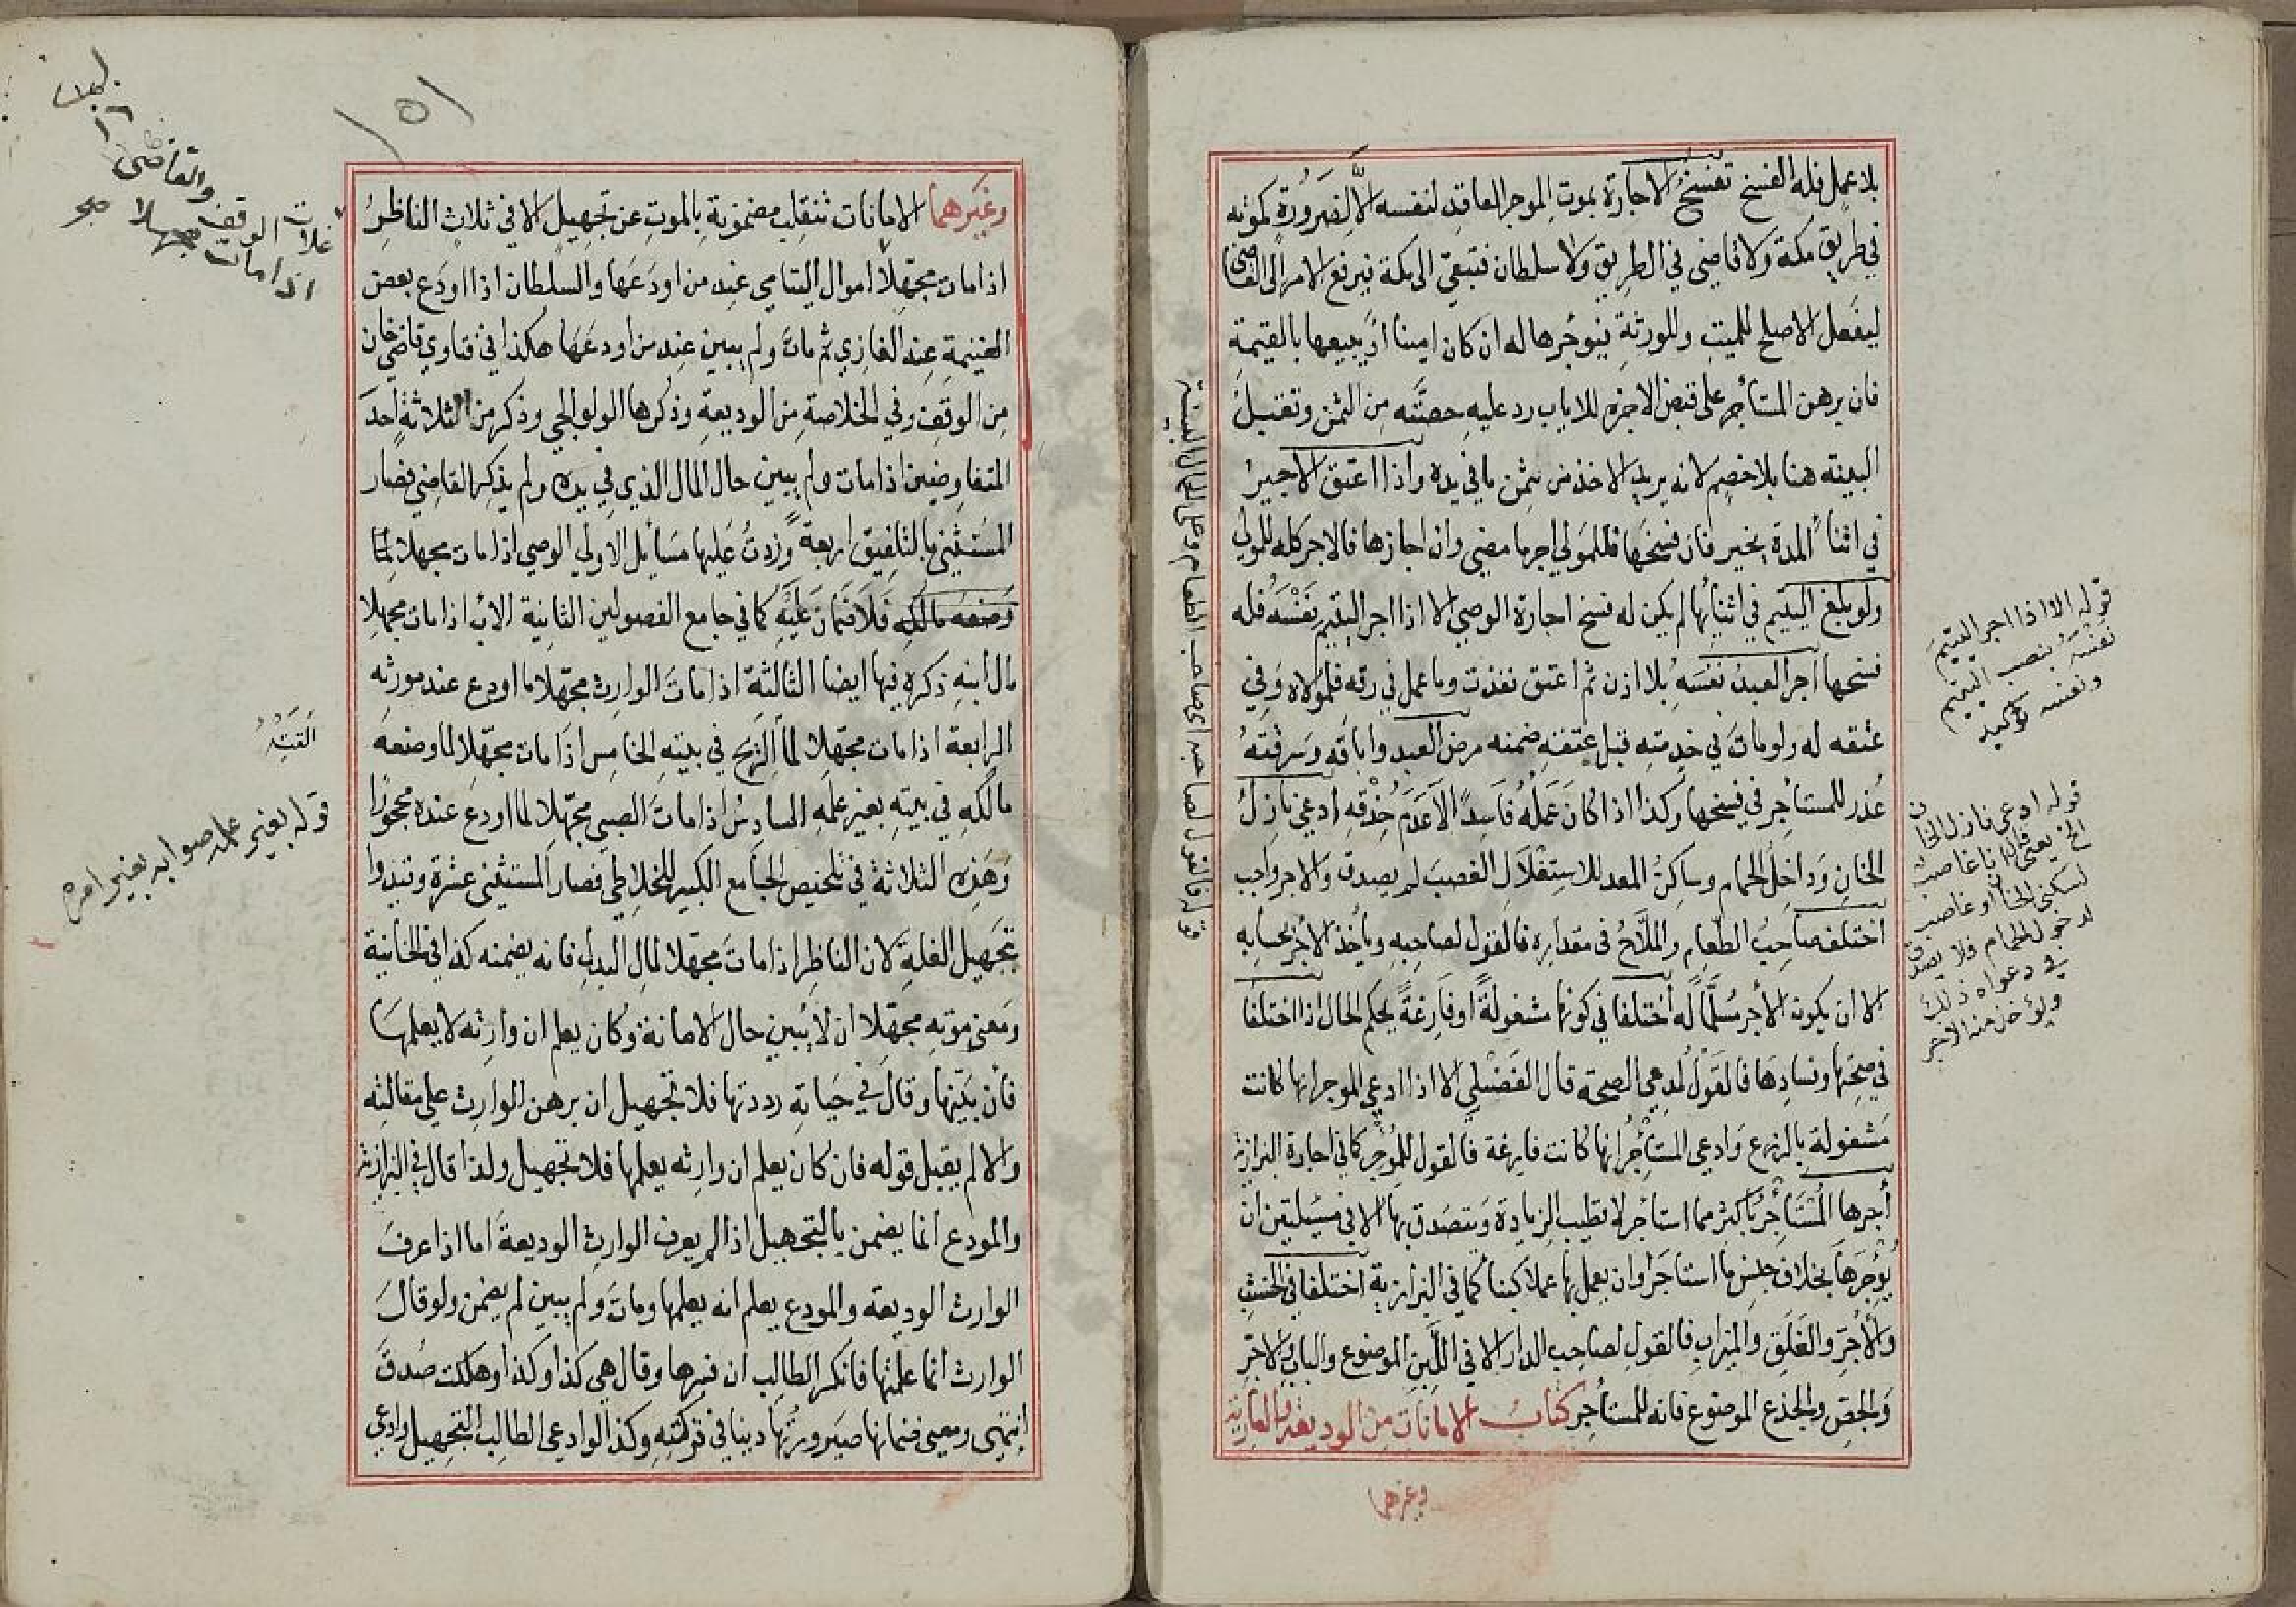 بلا عمل فله الفسخ تفسخ الاجارة بموت الموجر العاقد لنفسه الا لضرورة كموته
في طريق مكة ولا قاضي في الطريق ولا سلطان فتبقي الى مكة فيرفع الامر الى القاضي
ليفعل الاصلح للميت والورثة فيوجرها له ان كان امينا او يبيعها بالقيمة
فان برهن المستأجر على قبض الاجرة للاياب رد عليه حصته من الثمن وتقبل
البينة هنا بلا خصم لانه يريد الاخذ من ثمن ما في يده واذا اعتق الاجير
في اثناء المدة يخير فان فسخها فللمولي اجر ما مضى وان اجازها فالاجر كله للمولي
ولو بلغ اليتيم في اثنائها لم يكن له فسخ اجارة الوصي الا اذا اجر اليتيم نفسه فله
فسخها اجر العبد نفسه بلا اذن ثم اعتق نفذت وما عمل في رقه فلمولاه وفي
عتقه له ولو مات في خدمته قبل عتقه ضمنه مرض العبد واباقه وسرقته
عذر للمستأجر في فسخها وكذا اذا كان عمله فاسدا لا عدم حذقه ادعي نازل
الخان وداخل الحمام وساكن المعد للاستغلال الغصب لم يصدق والاجر واجب
اختلف صاحب الطعام والملاح في مقداره فالقول لصاحبه ويأخذ الاجر بحسابه
الا ان يكون الاجر مسلما له اختلفا في كونها مشغولة او فارغة يحكم الحال اذا اختلفا
في صحتها وفسادها فالقول لمدعي الصحة قال الفضلي الا اذا ادعي الموجر انها كانت
مشغولة بالزرع وادعي المستأجر انها كانت فارغة فالقول للموجر كما في اجارة البزازية
أجرها المستأجر باكثر مما استأجر لا تطيب الزيادة ويتصدق بها الا في مسئلتين ان
يؤجرها بخلاف جنس ما استاجر او ان يعمل بها عملا كبناء كما في البزازية اختلفا في الخشب
والآجر والغلق والميزاب فالقول لصاحب الدار الا في اللبن الموضوع والباب والآجر
والجص والجذع الموضوع فانه للمستأجر كتاب الامانات من الوديعة والعارية
وغيرهما
قوله الا اذا اجر اليتيم
نفسه بنصب اليتيم
ونفسه توكيد
قوله ادعى نازل الخان
الخ يعني قال انا غاصب
لسكنى الخان او غاصب
لدخول الحمام فلا يصدق
في دعواه ذلك
ويؤخذ منه الاجر
قوله فالقول لصاحبه اي صاحب الطعام وعلى الملاح البينة
١٥١
وغيرهما الامانات تنقلب مضمونة بالموت عن تجهيل الا في ثلاث الناظر
اذا مات مجهلا اموال اليتامي عند من اودعها والسلطان اذا اودع بعض
الغنيمة عند الغازي ثم مات ولم يبين عند من اودعها هكذا في فتاوي قاضي خان
من الوقف وفي الخلاصة من الوديعة وذكرها الولوالجي وذكر من الثلاثة احد
المتفاوضين اذا مات ولم يبين حال المال الذي في يده ولم يذكر القاضي فصار
المستثني بالتلفيق اربعة وزدت عليها مسايل الاولي الوصي اذا مات مجهلا لما
وضعه مالكه فلا ضمان عليه كما في جامع الفصولين الثانية الاب اذا مات مجهلا
مال ابنه ذكره فيها ايضا الثالثة اذا مات الوارث مجهلا ما اودع عند مورثه
الرابعة اذا مات مجهلا لما القته الريح في بيته الخامس اذا مات مجهلا لما وضعه
مالكه في بيته بغير علمه السادس اذا مات الصبي مجهلا لما اودع عنده محجورا
وهذه الثلاثة في تلخيص الجامع الكبير للخلاطي فصار المستثني عشرة وقيدوا
بتجهيل الغلة لان الناظر اذا مات مجهلا لمال البدل فانه يضمنه كذا في الخانية
ومعني موته مجهلا ان لا يبين حال الامانة وكان يعلم ان وارثه لا يعلمها
فان بينها وقال في حياته رددتها فلا تجهيل ان برهن الوارث علي مقالته
والا لم يقبل قوله فان كان يعلم ان وارثه يعلمها فلا تجهيل ولذا قال في البزازية
والمودع انما يضمن بالتجهيل اذا لم يعرف الوارث الوديعة اما اذا عرف
الوارث الوديعة والمودع يعلم انه يعلمها ومات ولم يبين لم يضمن ولو قال
الوارث انما علمتها فانكر الطالب ان فسرها وقال هي كذا وكذا وهلكت صدق
انتهى ومعنى ضمانها صيرورتها دينا في تركته وكذا لو ادعى الطالب التجهيل وادعي
غلات الوقف والقاضي
اذا مات مجهلا صح
القته
قوله بغير علمه صوابه بغير امره